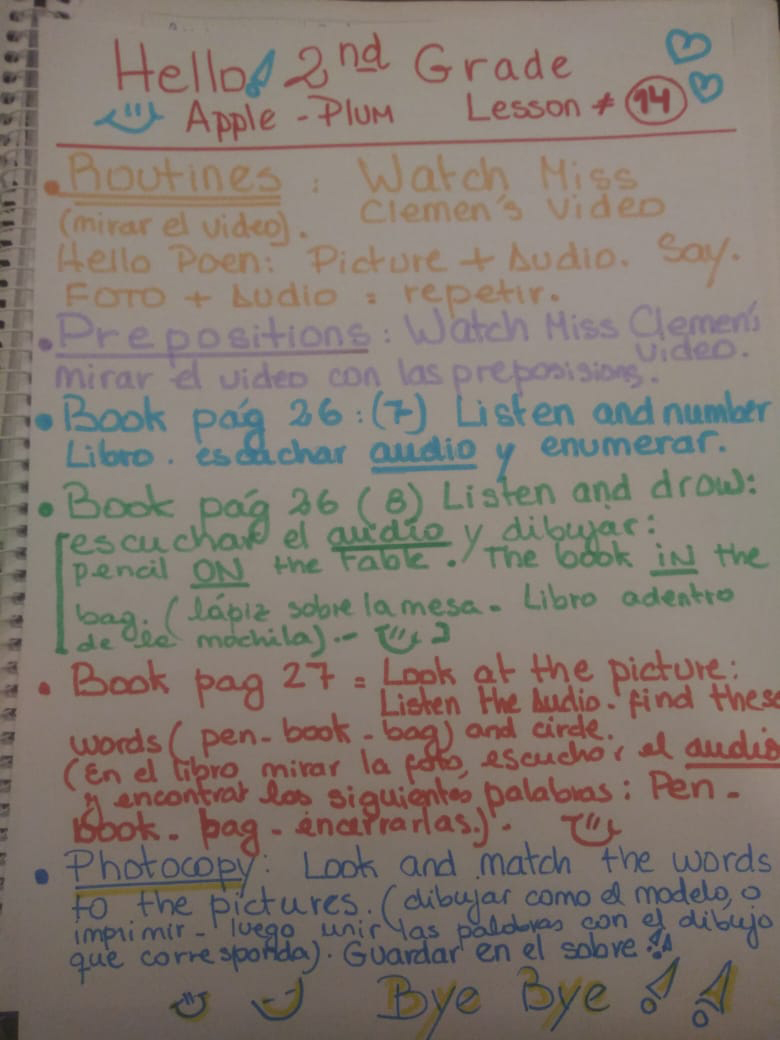 Hello! 2nd Grade
Apple - PLUM Lesson # 14
• Routines : Watch Miss
(mirar el video). Clemen's video
Hello Poen: Picture + Audio. Say.
FOTO + Audio = repetir.
• Prepositions: Watch Miss Clemen's
video.
mirar el video con las preposisions.
• Book pág 26: (7) Listen and number
Libro. escuchar audio y enumerar.
• Book pág 26 (8) Listen and drow:
[escuchar el audio y dibujar:
pencil ON the table. / The book iN the
bag. (lápiz sobre la mesa - Libro adentro
de la mochila).-
• Book pag 27 = Look at the picture:
Listen the Audio. find these
words (pen - book - bag) and circle.
(En el libro mirar la foto, escuchar el audio
y encontrar las siguientes palabras: Pen -
Book - bag - encerrarlas.).
• Photocopy: Look and match the words
to the pictures. (dibujar como el modelo, o
imprimir - luego unir las palabras con el dibujo
que corresponda). Guardar en el sobre!!
Bye Bye!!